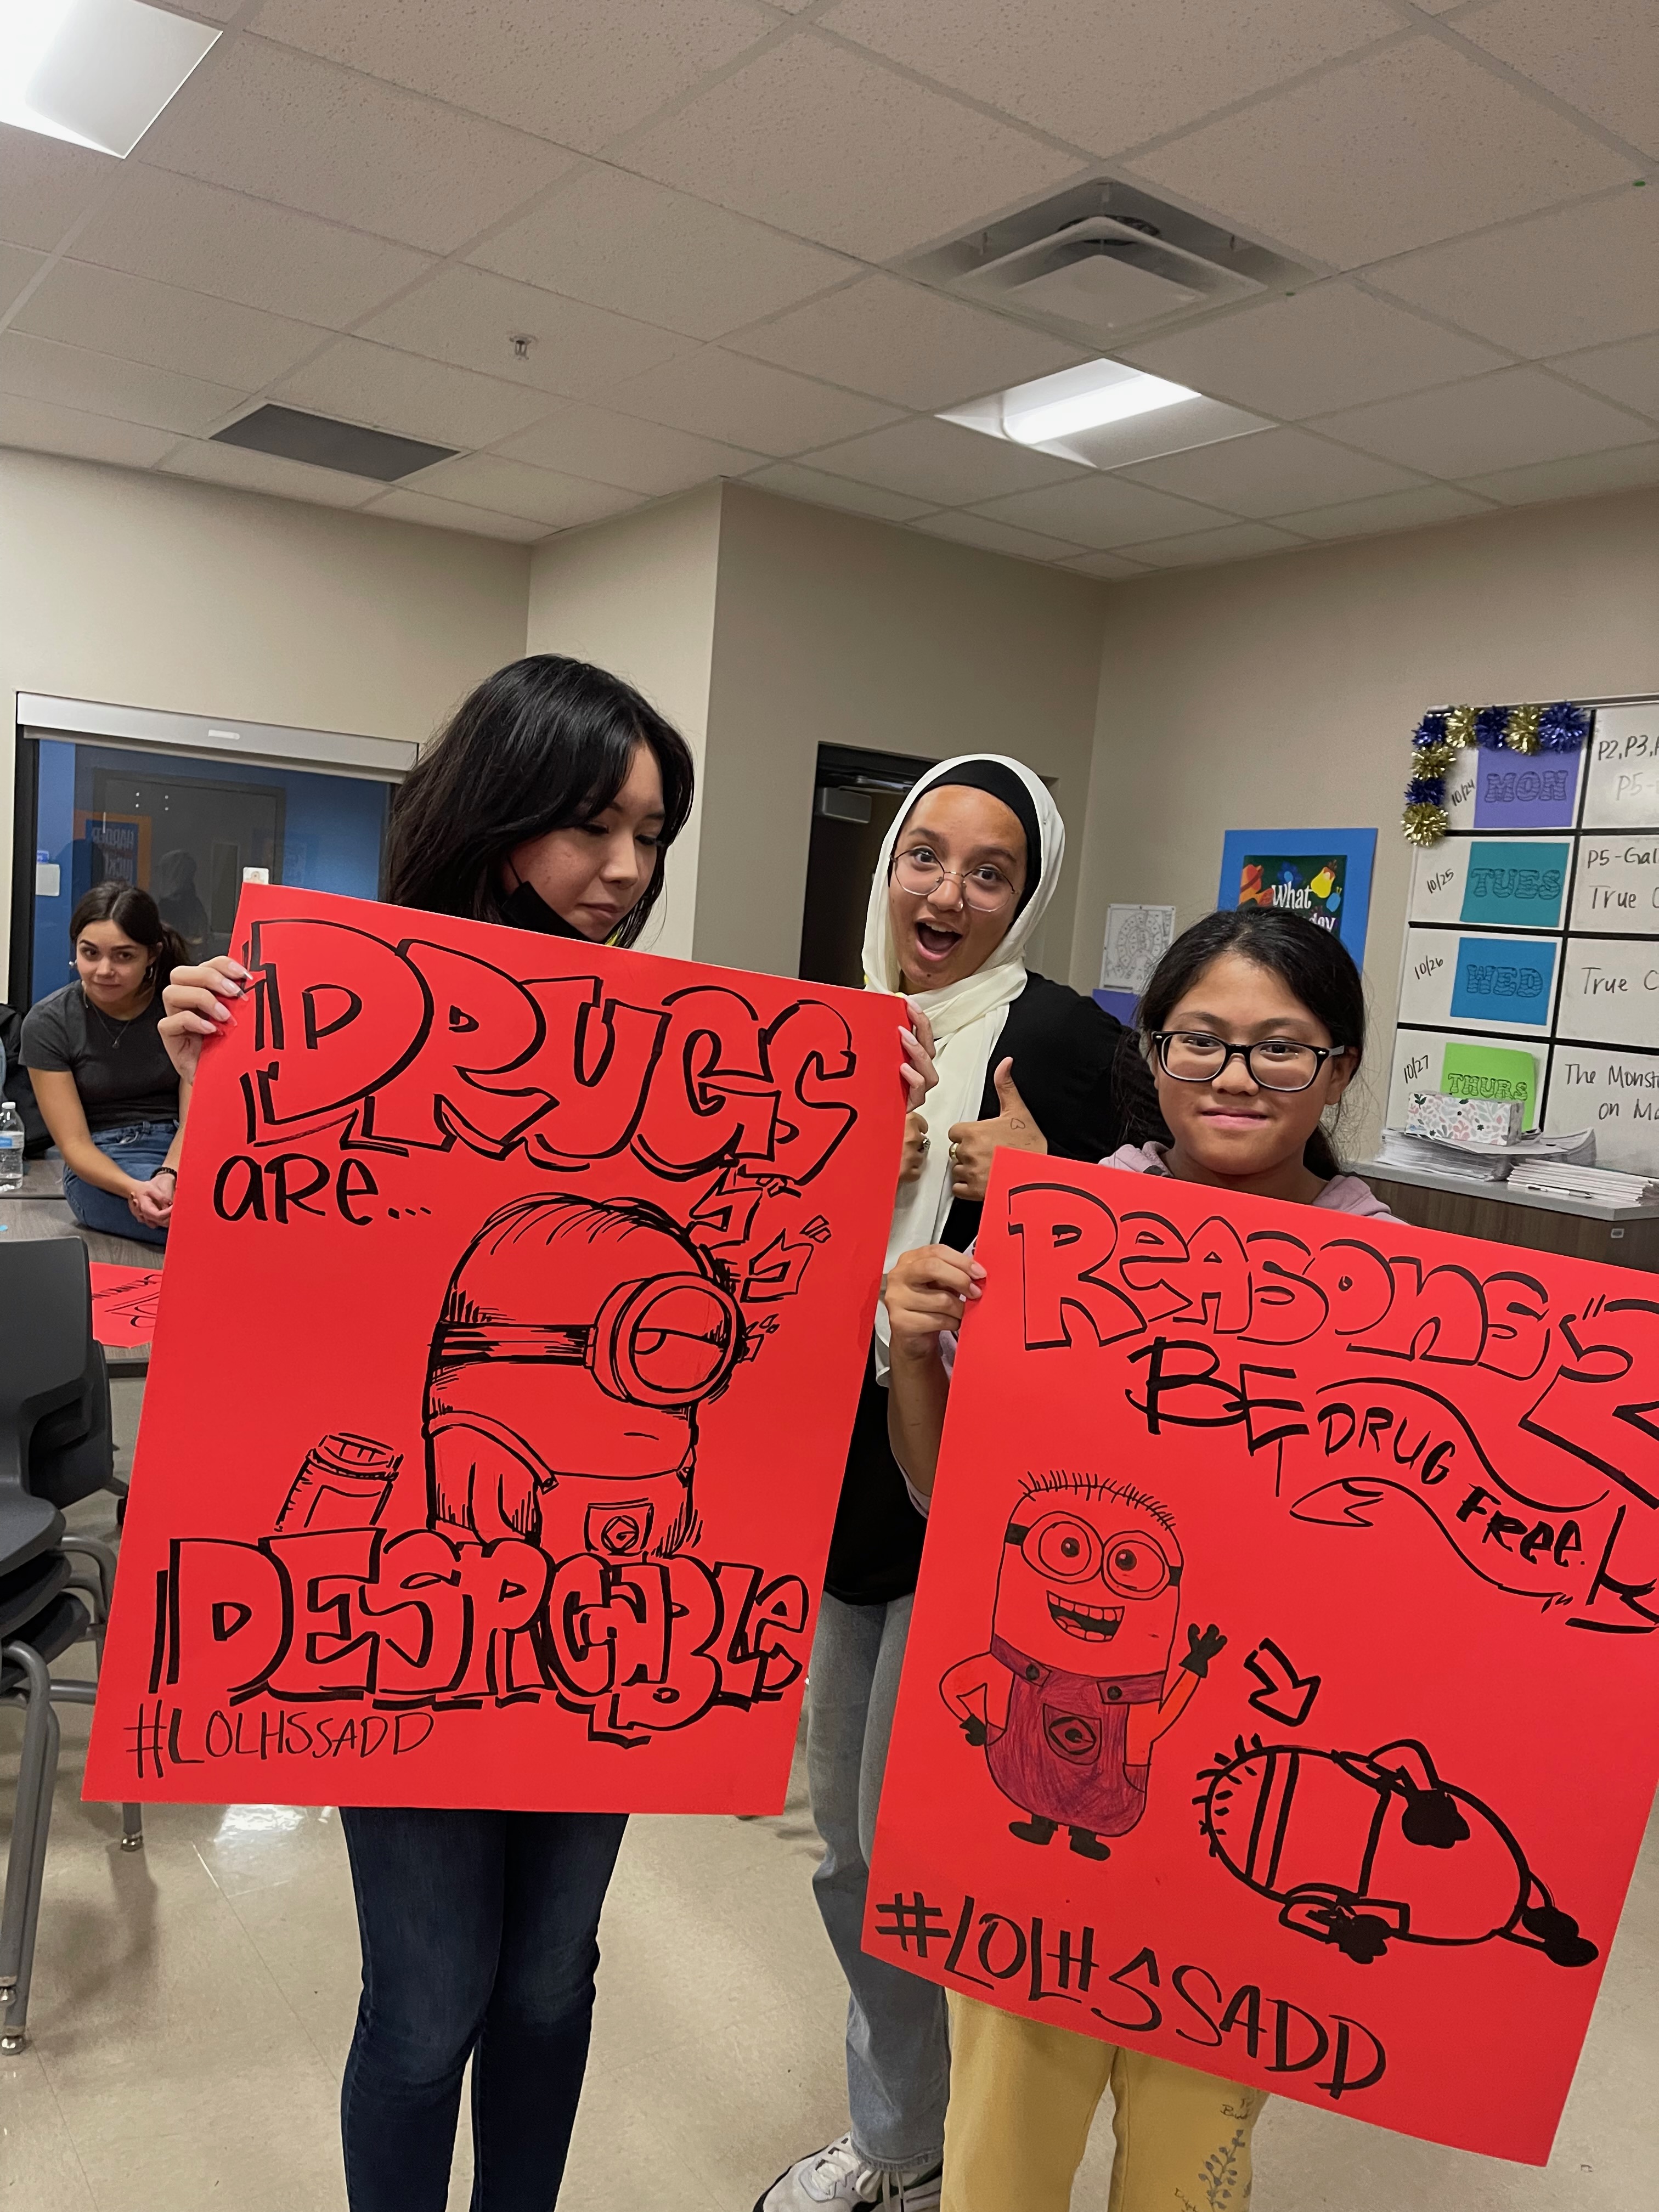 DRUGS
ARe...
DESPICABLe
#LOLHSSADD
ReASONS 2
BE DRUG
FRee!
#LOLHSSADD
What
10/24 MON
P2, P3,
P5-
10/25 TUES
P5-Gal
True C
10/26 WED
True C
10/27 THURS
The Monst
on Ma